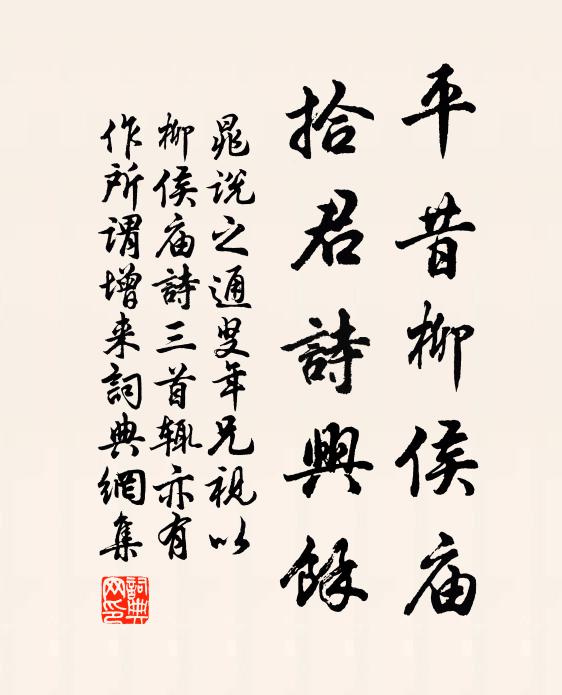 平昔柳侯庙
拾君詩興餘
晁说之通叟年兄視以
柳侯庙詩三首辄亦有
作所谓增来詞典網集
詞典网印